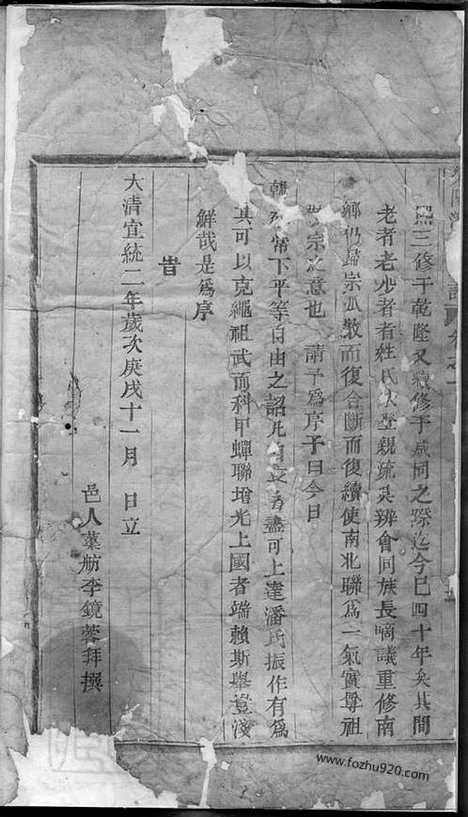 熙三修于乾隆又續修于咸同之際迄今已四十年矣其間
老者老少者者姓氏失登親疏莫辨會同族長嘀議重修南
鄉仍歸宗派散而復合斷而復續使南北聯爲一氣實尊祖
宗之意也 請予爲序予曰今日
常下平等自由之詔凡自立者盡可上達潘氏振作有爲
其可以克繩祖武而科甲蟬聯增光上國者端賴斯舉豈淺
鮮哉是爲序
旹
大清宣統二年歲次庚戌十一月 日立
邑人葉舫李鏡蓉拜撰
www.fozhu920.com